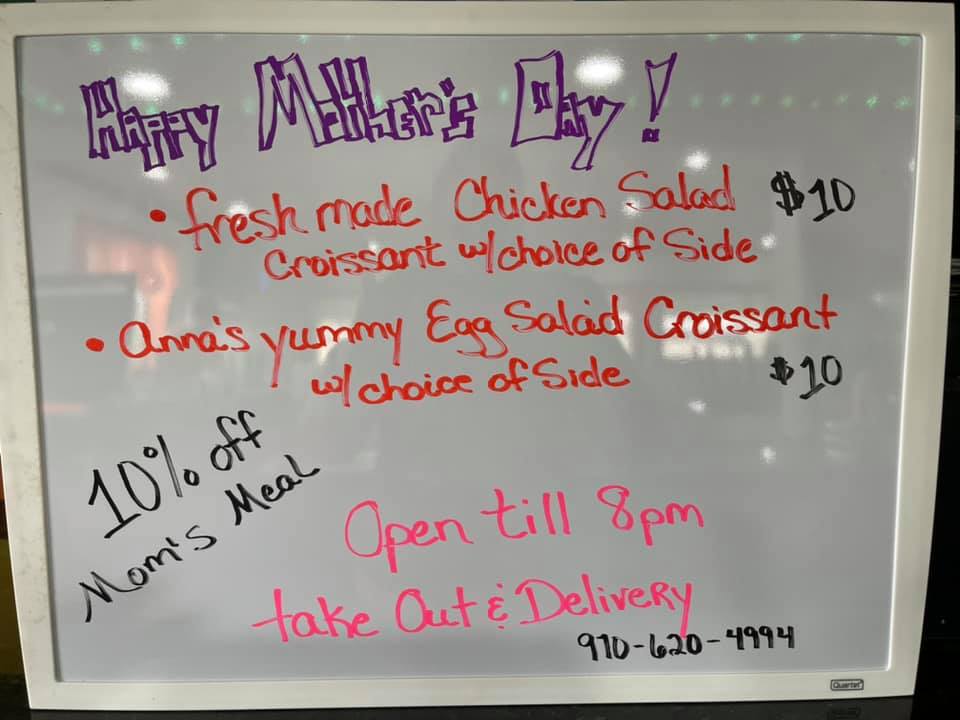 Happy Mother's Day!
• fresh made Chicken Salad $10
Croissant w/choice of Side
• Anna's yummy Egg Salad Croissant
w/choice of Side $10
10% off
Mom's Meal
Open till 8pm
take Out & Delivery
910-620-4994
Quartet